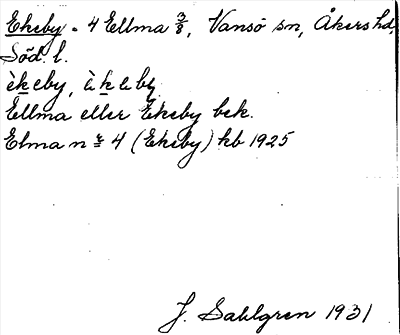 Ekeby = 4 Ellma 3/8, Vansö sn, Åkers hd,
Söd. l.
èkeby, èkeby,
Ellma eller Ekeby bek.
Elma nr 4 (Ekeby) kb 1925
J. Sahlgren 1931